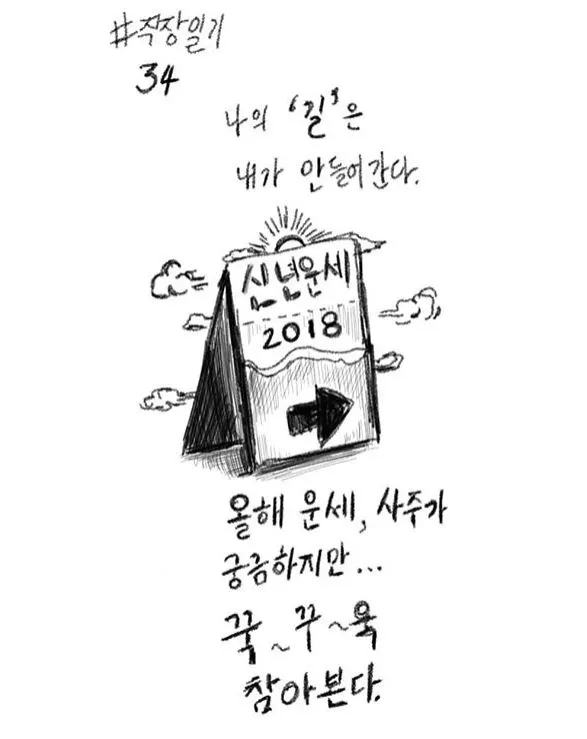 #직장일기
34
나의 '길'은
내가 만들어간다.
신년운세
2018
올해 운세, 사주가
궁금하지만...
꾹~꾸~욱
참아본다.